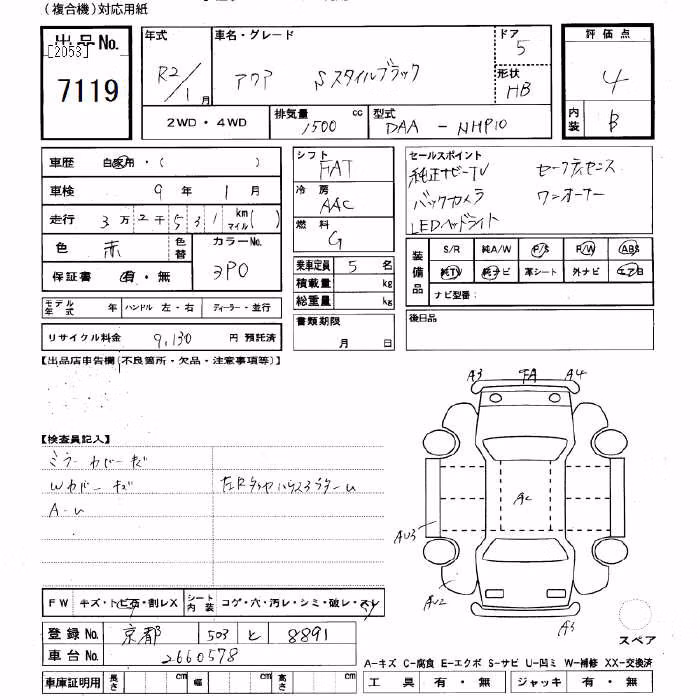 (複合機)対応用紙
出品No.
[2053]
7119
年式
R2/1月
車名・グレード
アクア Sスタイルブラック
ドア
5
形状
HB
2WD・4WD
排気量
1500 cc
型式
DAA - NHP10
評価点
4
内装
B
車歴 自家用・( )
車検 9年 1月
走行 3万2千531 km マイル( )
色 赤 色替
カラーNo.
3P0
保証書 有・無
モデル年式 年 ハンドル 左・右 ディーラー・並行
リサイクル料金 9,130 円 預託済
シフト
FAT
冷房
AAC
燃料
G
乗車定員 5 名
積載量 kg
総重量 kg
書類期限
月 日
セールスポイント
純正ナビーTV セーフティセンス
バックカメラ ワンオーナー
LEDヘッドライト
装備品
S/R 純A/W P/S P/W ABS
純TV 純ナビ 革シート 外ナビ エアB
ナビ型番:
後日品
【出品店申告欄(不良箇所・欠品・注意事項等)】
【検査員記入】
ミラーカバーキズ
Wカバーキズ
A-U
A3 FA A4
AC
AU3
AU2
A3
スペア
FW キズ・トビ石・割レX シート内装 コゲ・穴・汚レ・シミ・破レ・スレ
登録No. 京都 503 と 8891
車台No. 2660578
車庫証明用 長さ cm 幅 cm 高さ cm
A-キズ C-腐食 E-エクボ S-サビ U-凹ミ W-補修 XX-交換済
工具 有・無 ジャッキ 有・無